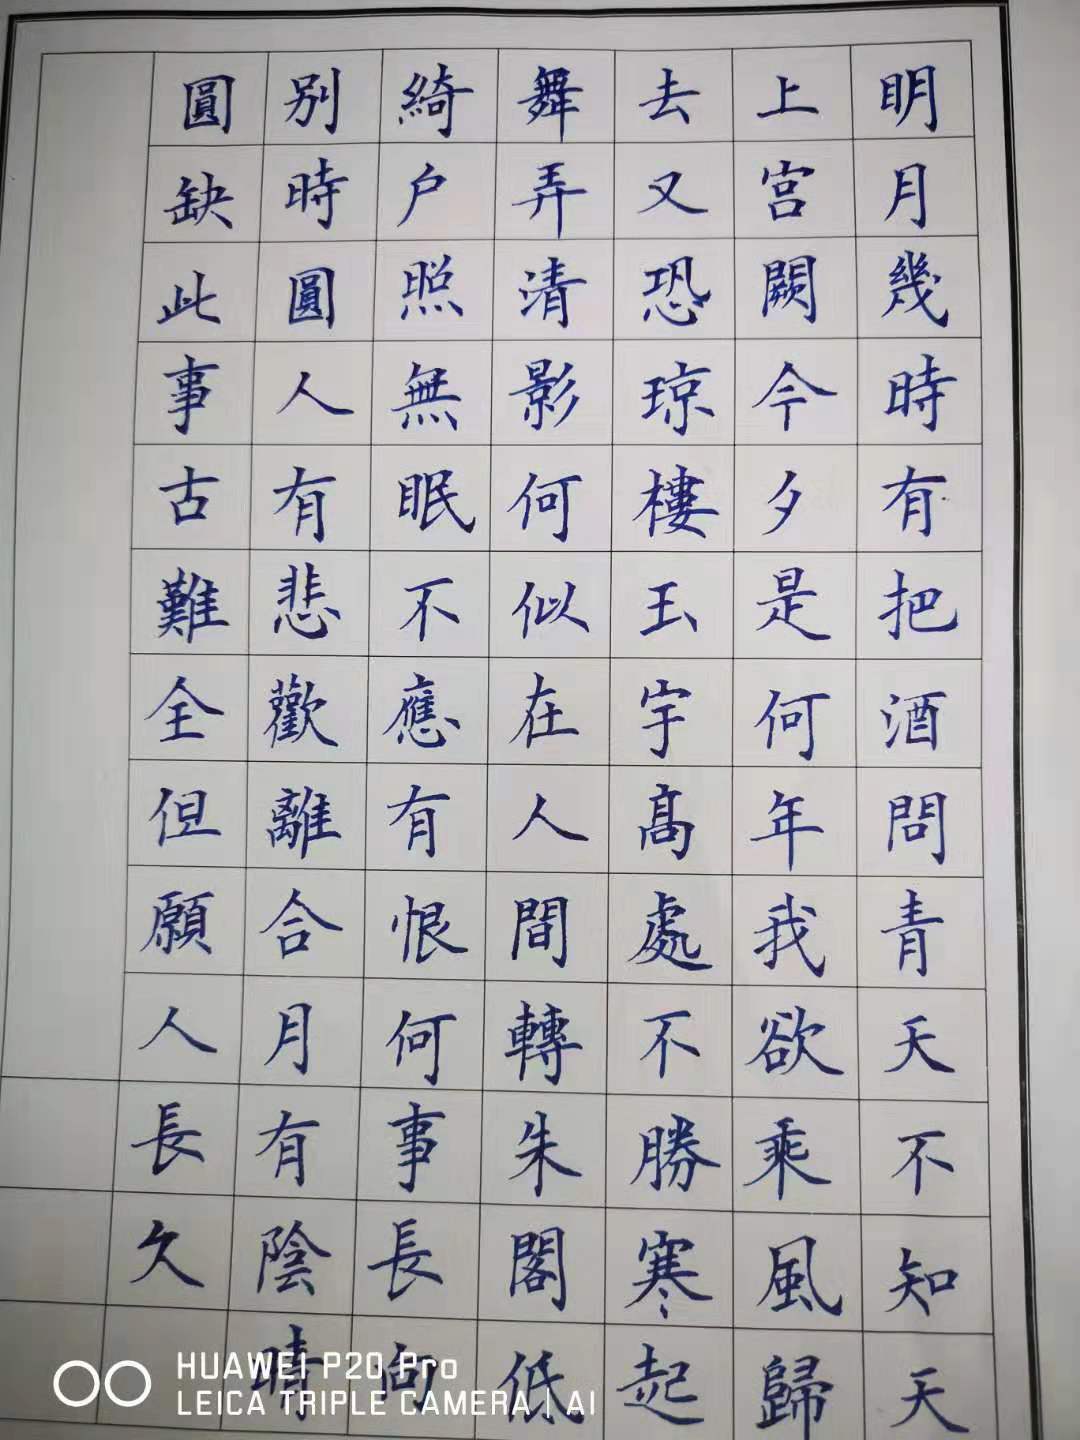 明月幾時有把酒問青天不知天
上宮闕今夕是何年我欲乘風歸
去又恐琼樓玉宇高處不勝寒起
舞弄清影何似在人間轉朱閣低
綺户照無眠不應有恨何事長向
別時圓人有悲歡離合月有陰晴
圓缺此事古難全但願人長久
HUAWEI P20 Pro
LEICA TRIPLE CAMERA | AI